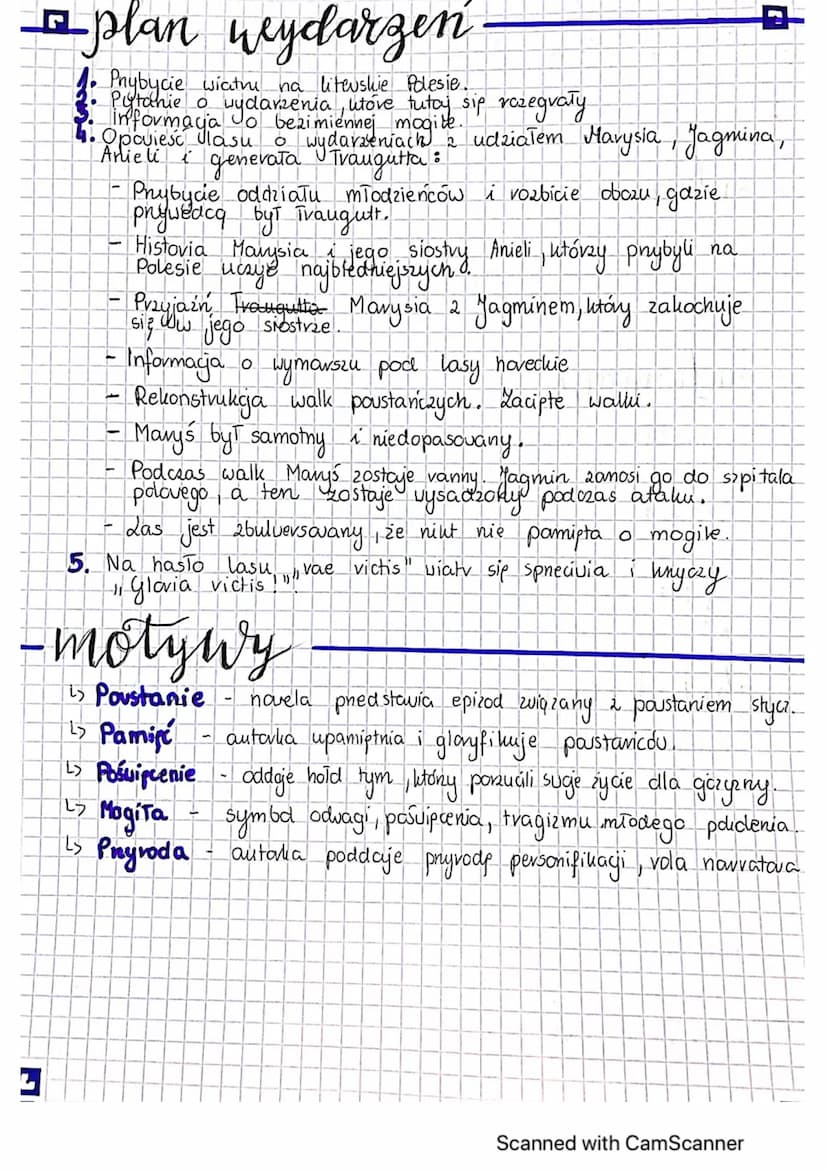 plan wydarzeń
1. Przybycie wiatru na litewskie Polesie.
2. Pytanie o wydarzenia, które tutaj się rozegrały
3. Informacja o bezimiennej mogile.
4. Opowieść lasu o wydarzeniach z udziałem Marysia, Jagmina,
Anieli i generała Traugutta:
- Przybycie oddziału młodzieńców i rozbicie obozu, gdzie
przywódcą był Traugutt.
- Historia Marysia i jego siostry Anieli, którzy przybyli na
Polesie uczyć najbiedniejszych.
- Przyjaźń Traugutta Marysia z Jagminem, który zakochuje
się w jego siostrze.
- Informacja o wymarszu pod lasy horeckie
- Rekonstrukcja walk powstańczych. Zacięte walki.
- Maryś był samotny i niedopasowany.
- Podczas walk Maryś zostaje ranny. Jagmin zanosi go do szpitala
polowego, a ten zostaje wysadzony podczas ataku.
- Las jest zbulwersowany, że nikt nie pamięta o mogile.
5. Na hasło lasu „vae victis" wiatr się sprzeciwia i krzyczy
„Gloria victis!"
motywy
↳ Powstanie - novela przedstawia epizod związany z powstaniem stycz.
↳ Pamięć - autorka upamiętnia i gloryfikuje powstańców.
↳ Poświęcenie - oddaje hołd tym, którzy porzucili swoje życie dla ojczyzny.
↳ Mogiła - symbol odwagi, poświęcenia, tragizmu młodego pokolenia.
↳ Przyroda - autorka poddaje przyrodę personifikacji, rola narratora
Scanned with CamScanner